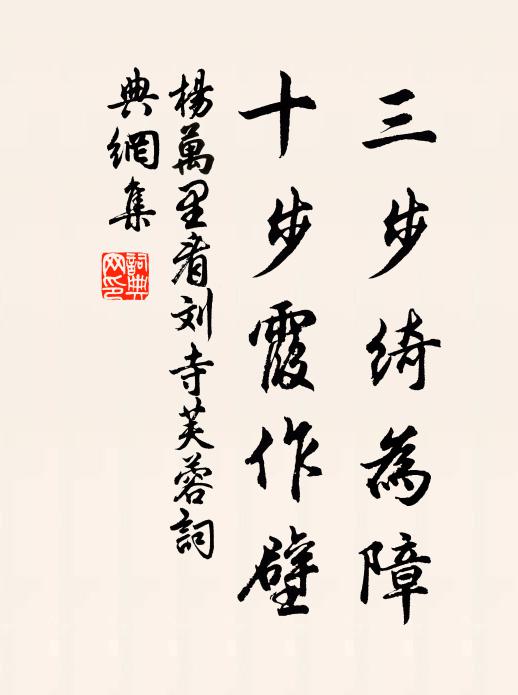 三步綺為障
十步霞作壁
楊萬里看刘寺芙蓉詞
典網集
詞典
网印